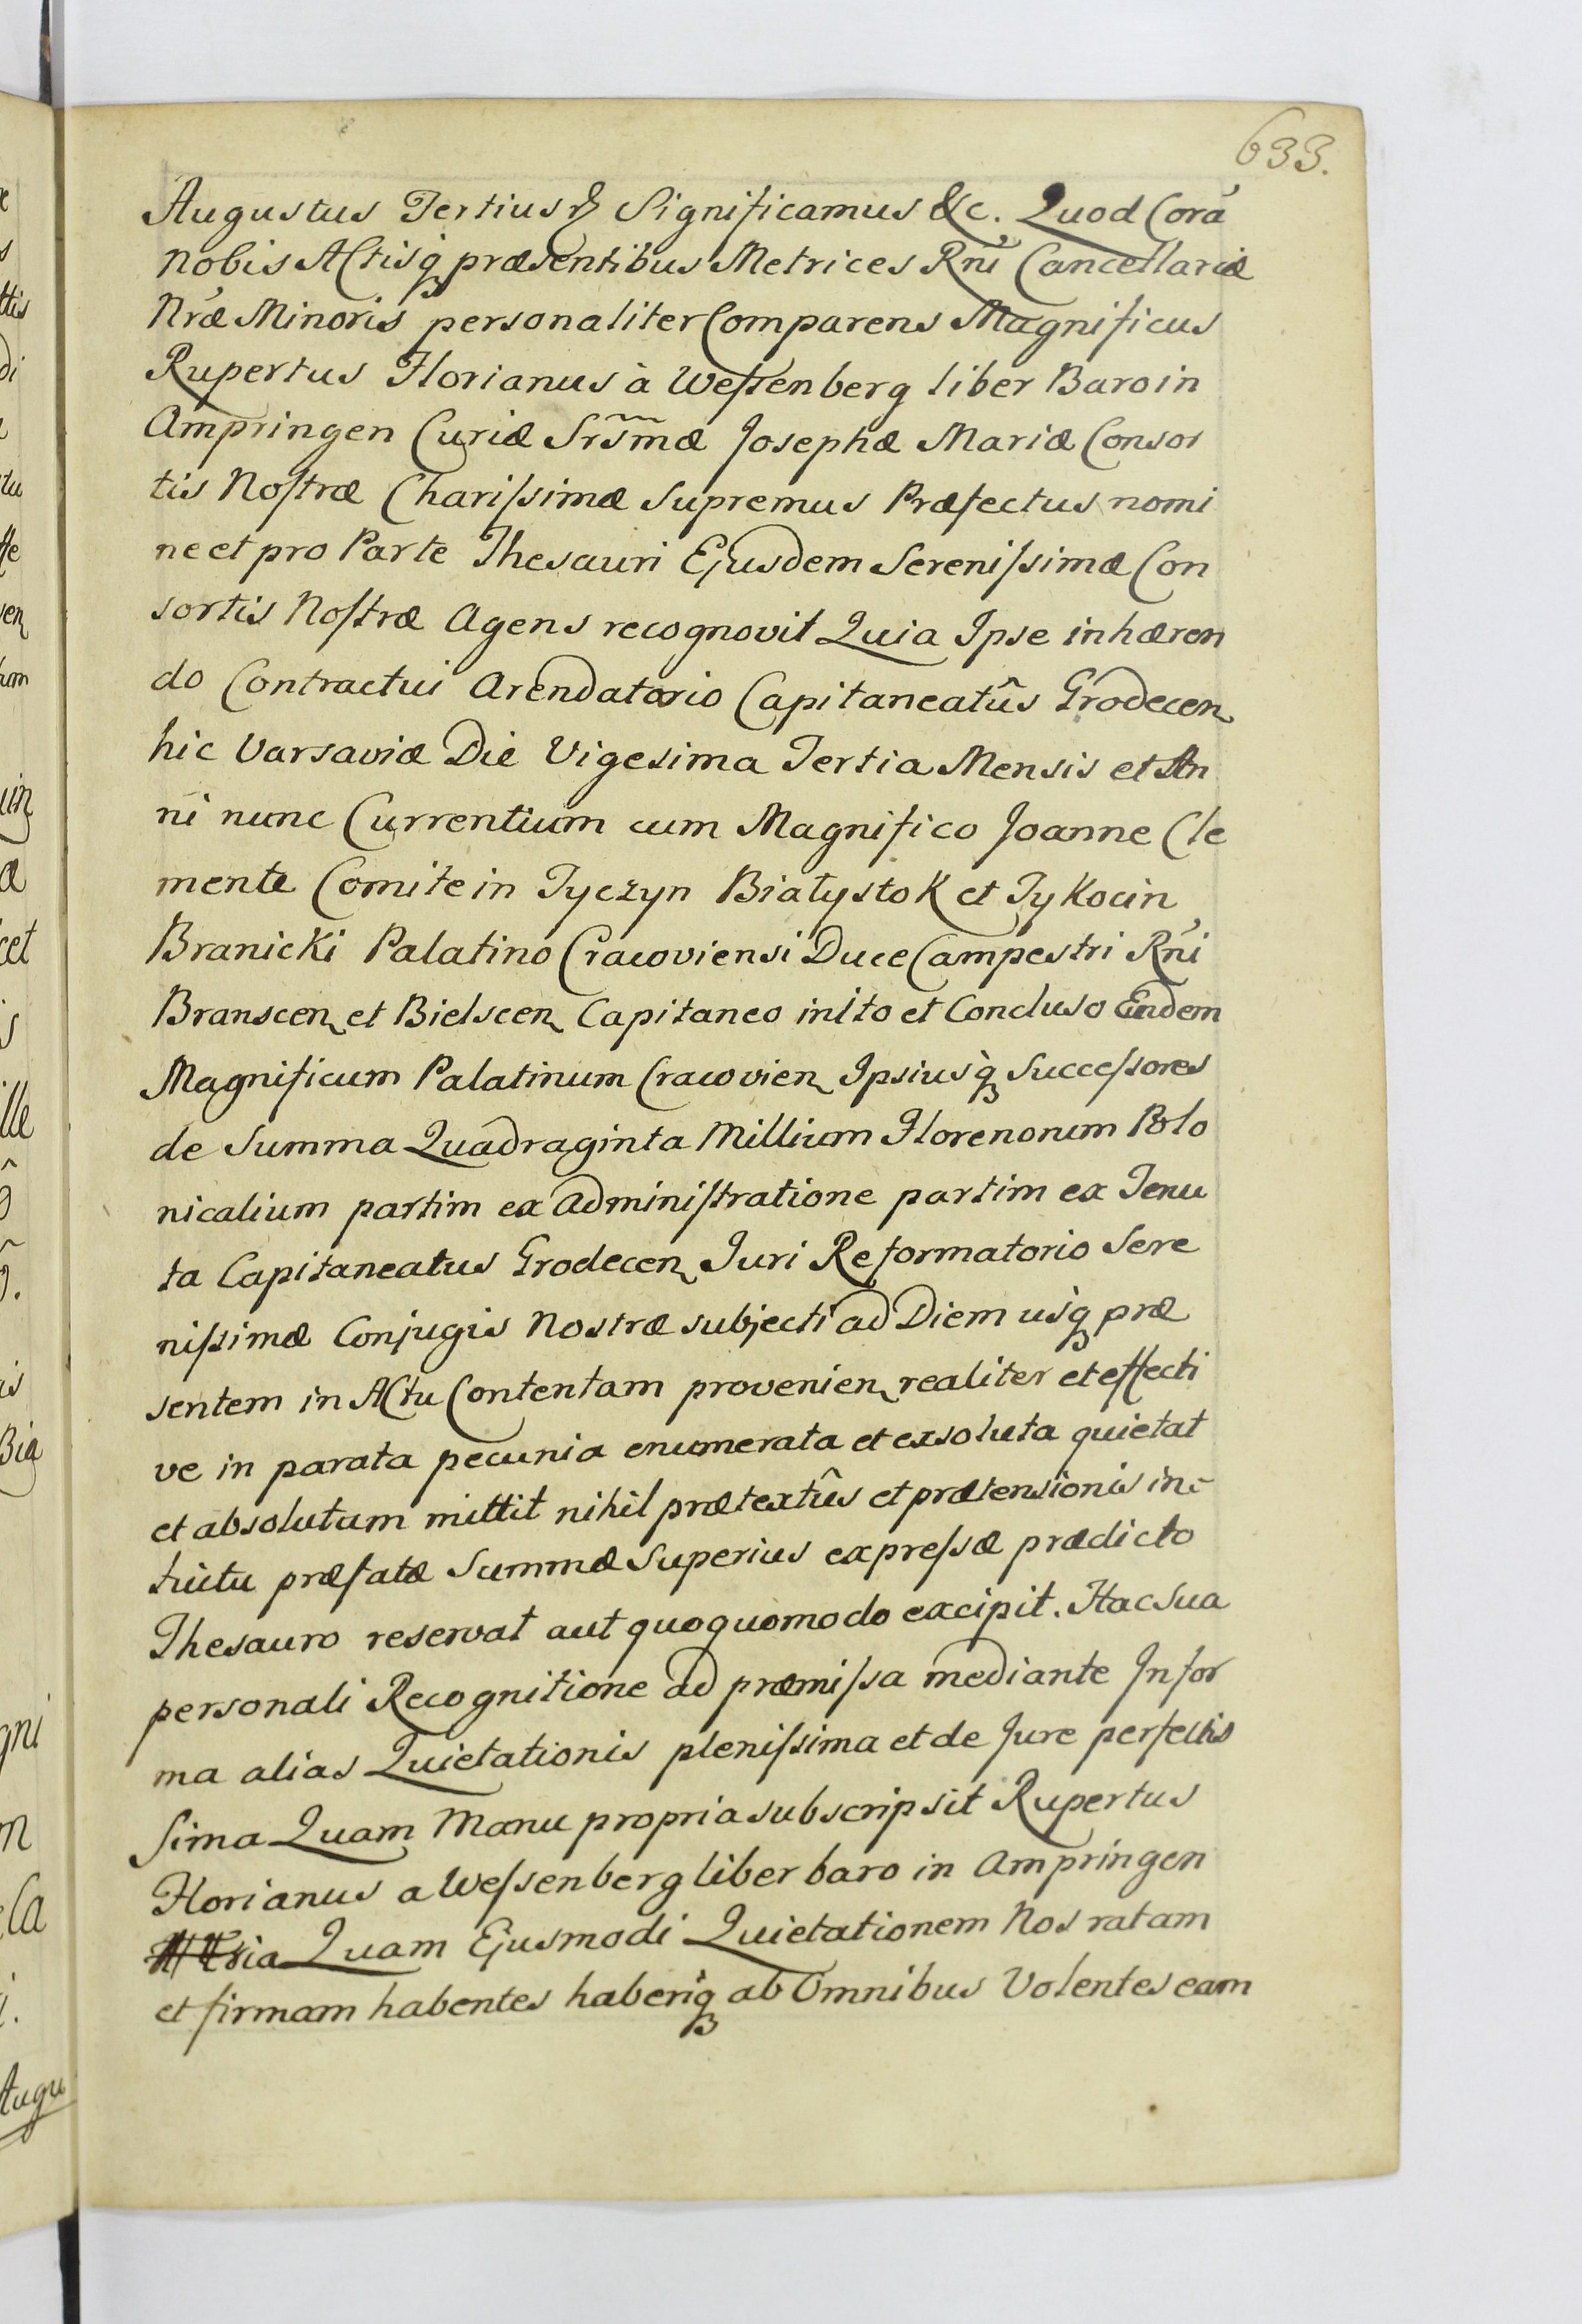 633.
Augustus Tertius &c Significamus &c. Quod Corá
nobis Actisq́ præsentibus Metrices Rńi Cancellariæ
Nræ Minoris personaliter Comparens Magnificus
Rupertus Florianus à Weſsenberg liber Baro in
Ampringen Curiæ Srs̃mæ Josephæ Mariæ Consor
tis Noſtræ Chariſsimæ Supremus Præfectus nomi
ne et pro Parte Thesauri Ejusdem Sereniſsimæ Con
sortis Noſtræ Agens recognovit Quia Ipse inhæren
do Contractui Arendatorio Capitaneatûs Grodecen
hic Varsaviæ Die Vigesima Tertia Mensis et An
ni nunc Currentium cum Magnifico Joanne Cle
mente Comite in Tyczyn Białystok et Tykocin
Branicki Palatino Cracoviensi Duce Campestri Rńi
Branscen et Bielscen Capitaneo inito et Concluso Eundem
Magnificum Palatinum Cracovien Ipsiusq̀ Succeſsores
de Summa Quadraginta Millium Florenorum Polo
nicalium partim ex Adminiſtratione partim ex Tenu
ta Capitaneatus Grodecen Juri Reformatorio Sere
niſsimæ Conjugis Nostræ subjecti ad Diem usq́ præ
sentem in Actu Contentam provenien realiter et effecti
ve in parata pecunia enumerata et exsoluta quietat
et absolutum mittit nihil prætextûs et prætensionis in-
tuitu præfatæ Summæ Superius expreſsæ prædicto
Thesauro reservat aut quoquomodo excipit. Hac Sua
personali Recognitione ad præmiſsa mediante In for
ma alias Quietationis pleniſsima et de Jure perfectis
sima Quam Manu propria subscripsit Rupertus
Florianus a Weſsenberg liber baro in Ampringen
Quam Ejusmodi Quietationem Nos ratam
et firmam habentes haberiq́ ab Omnibus Volentes eam